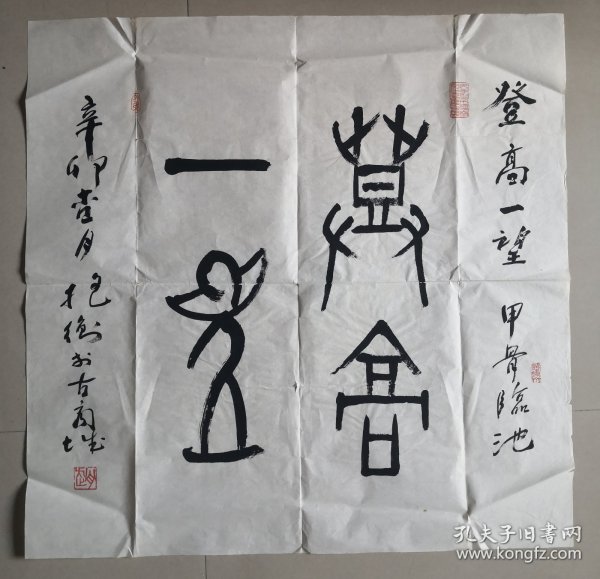 登高一望 甲骨臨池
登高
一望
辛卯壹月 抱衡書古商城
孔夫子旧书网
www.kongfz.com